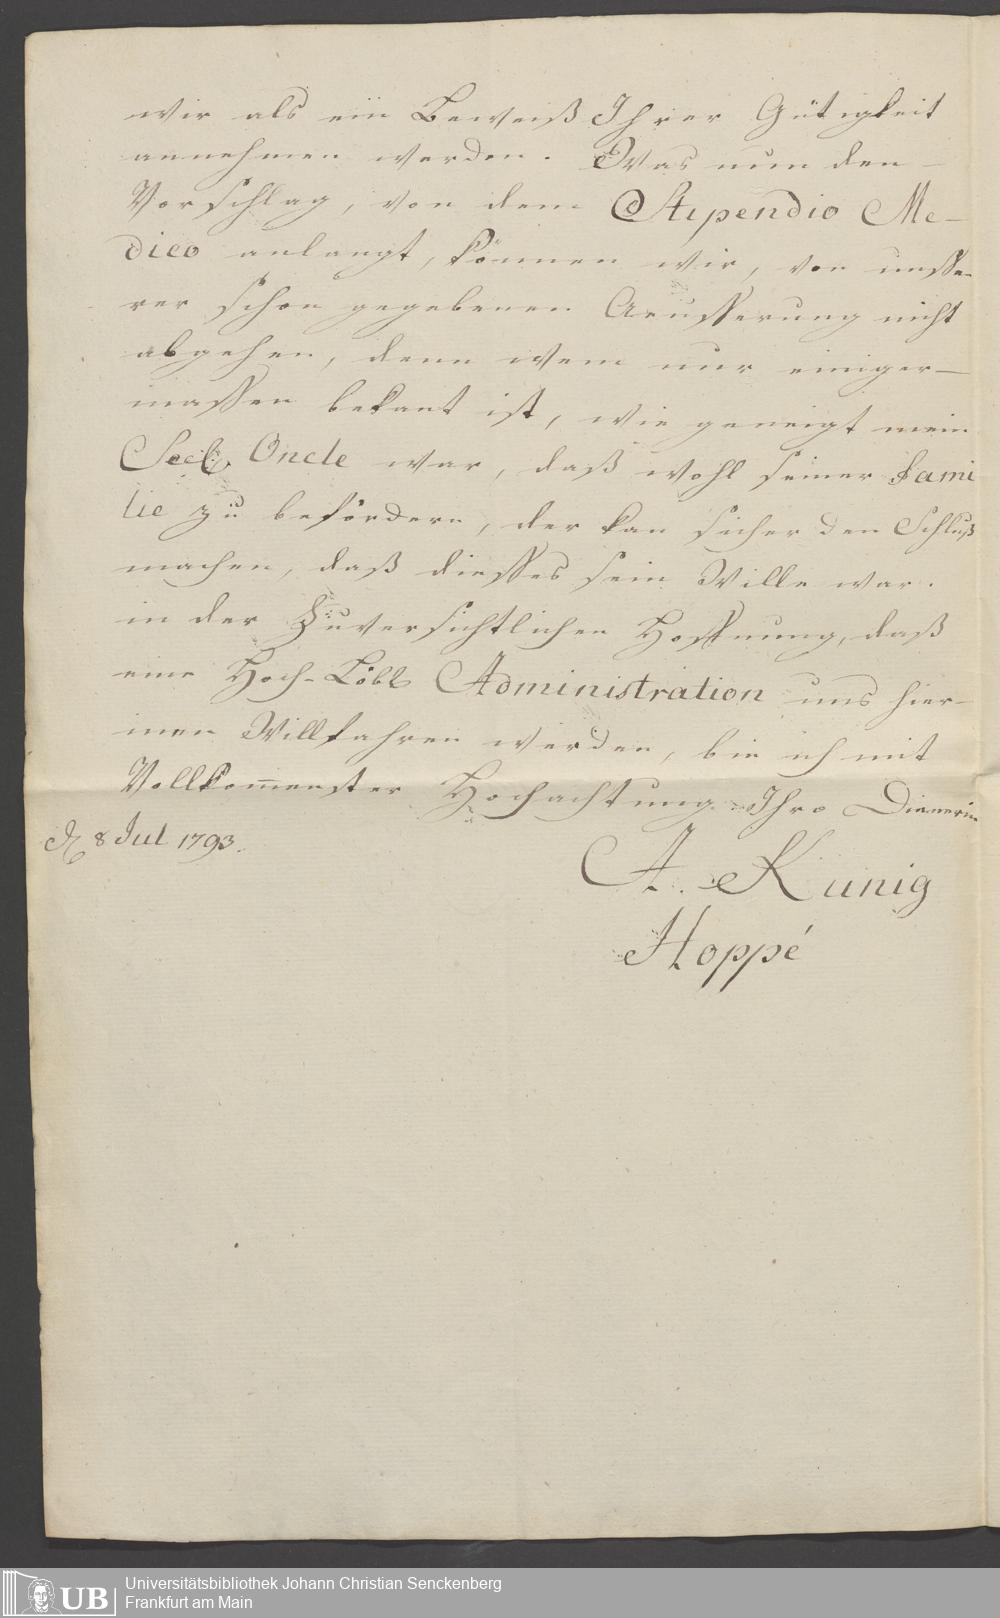 wir als ein Beweiß Ihrer Gütigkeit
annehmen werden. Was nun den
Vorschlag, von dem Stipendio Me-
dico anlangt, können wir, von unsse-
rer schon gegebenen Aeusserung nicht
abgehen, denn wem nur einiger-
massen bekant ist, wie geneigt mein
Seel. Oncle war, daß wohl seiner Fami
lie zu befördern, der kan sicher den Schluß
machen, daß diesses sein Wille war.
in der Zuversichtlichen Hoffnung, daß
eine Hoch-Löbl Administration uns hier-
inen Willfahren werden, bin ich mit
Vollkom̅enster Hochachtung Ihro Dienerin
d 8 Jul 1793.
A. Kunig
Hoppé
UB
Universitätsbibliothek Johann Christian Senckenberg
Frankfurt am Main